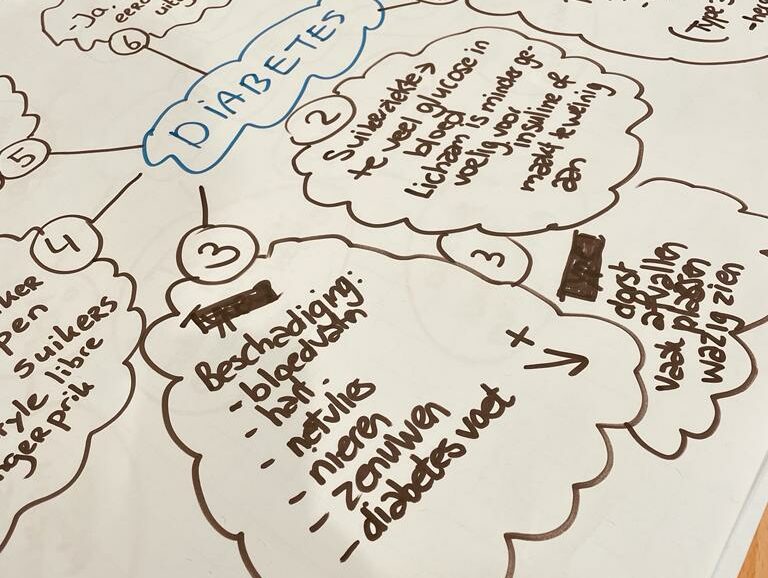 -Ja,
6
DIABETES
(Type
2
Suikerziekte →
te veel glucose in
bloed
Lichaam is minder ge-
voelig voor
insuline of
maakt te weinig
aan
5
4
pen
suikers
libre
prik
3
Beschadiging:
- bloedvaten
- hart
- netvlies
- nieren
- zenuwen
- diabetes voet
+
→
3
dorst
afvallen
vaak plassen
wazig zien